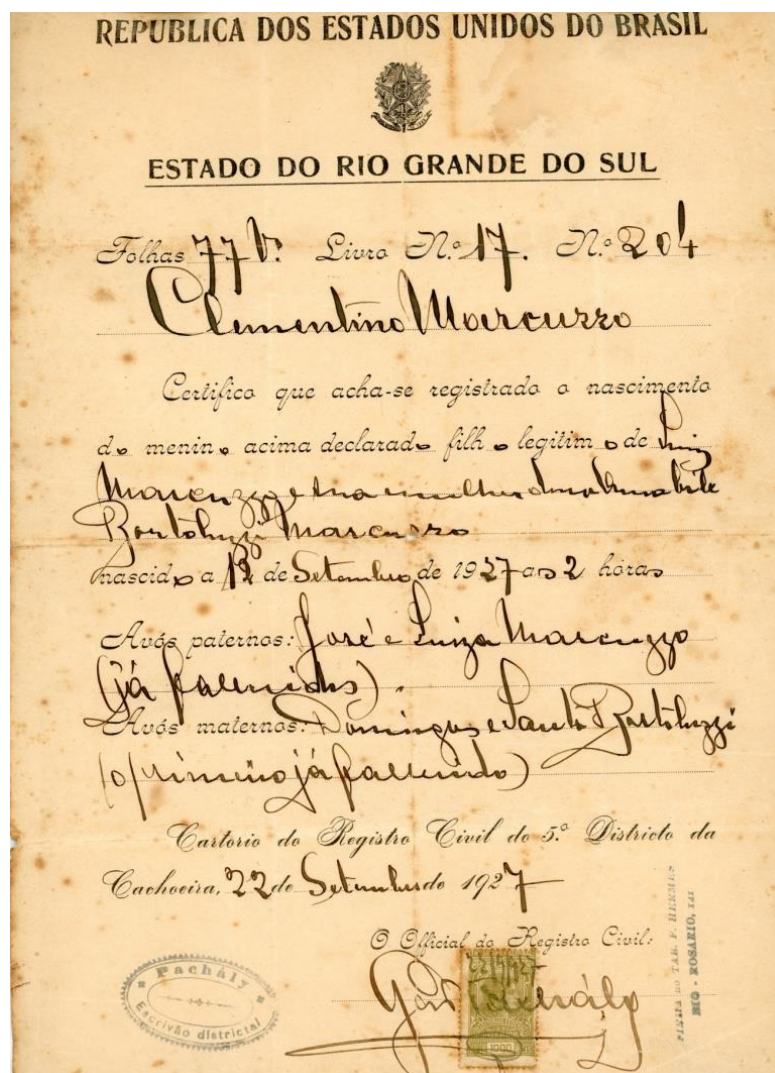 REPUBLICA DOS ESTADOS UNIDOS DO BRASIL
ESTADO DO RIO GRANDE DO SUL
Folhas 77 V. Livro N.º 17. N.º 204
Clementino Marcuzzo
Certifico que acha-se registrado o nascimento
do menino acima declarado filho legitimo de Luiz
Marcuzzo e sua mulher dona Amabile
Bortoluzzi Marcuzzo
nascido a 12 de Setembro de 1927 as 2 horas
Avós paternos: José e Luiza Marcuzzo
(já fallecidos).
Avós maternos: Domingos e Santa Bortoluzzi
(o primeiro já fallecido)
Cartorio do Registro Civil do 5.º Districto da
Cachoeira, 22 de Setembro de 1927
O Official do Registro Civil:
Pachály
Escrivão districtal
Pachály
1000
FIRMA NO TAB. F. HERMES
RIO - ROSARIO, 141